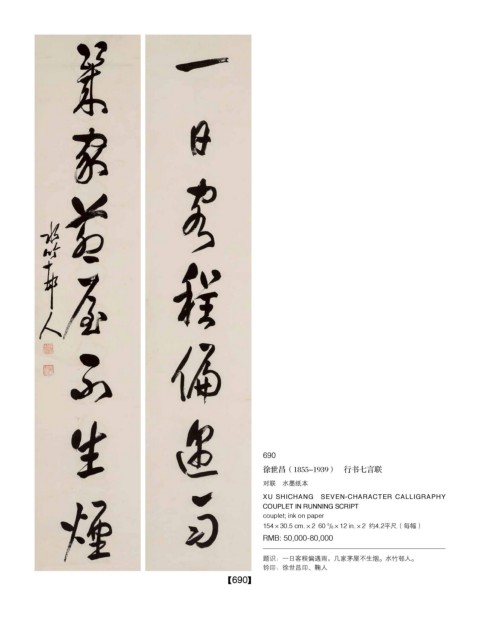 一日客程偏遇雨
幾家茅屋不生煙
水竹邨人
690
徐世昌（1855–1939） 行书七言联
对联 水墨纸本
XU SHICHANG SEVEN-CHARACTER CALLIGRAPHY
COUPLET IN RUNNING SCRIPT
couplet; ink on paper
154×30.5 cm.×2 60 ⁵/₈×12 in.×2 约4.2平尺（每幅）
RMB: 50,000-80,000
题识：一日客程偏遇雨，几家茅屋不生烟。水竹邨人。
钤印：徐世昌印、鞠人
【690】